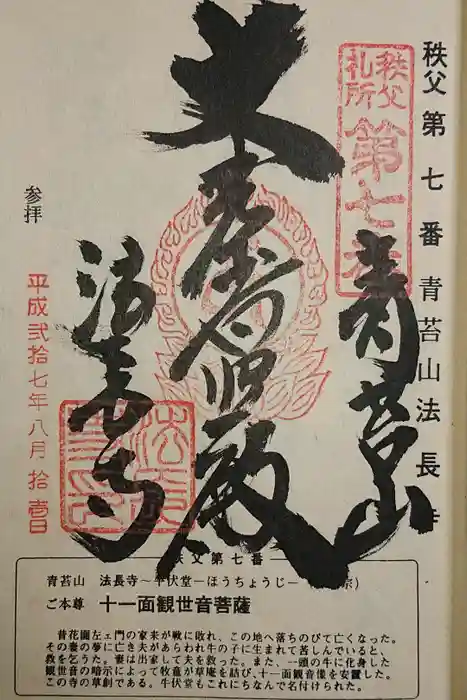 秩父第七番 青苔山 法長寺
秩父
札所
第七番
青苔山
大悲殿
法長寺
参拝
平成弐拾七年八月拾壱日
秩父第七番
青苔山 法長寺～牛伏堂－ほうちょうじ－ 宗)
ご本尊 十一面観世音菩薩
昔花園左ェ門の家来が戦に敗れ、この地へ落ちのびて亡くなった。
その妻の夢に亡き夫があらわれ牛の子に生まれて苦しんでいると、
救を乞うた。妻は出家して夫を救った。また、一頭の牛に化身した
観世音の暗示によって牧童が草庵を結び、十一面観音像を安置した。
この寺の草創である。牛伏堂もこれにちなんで名付けられた。